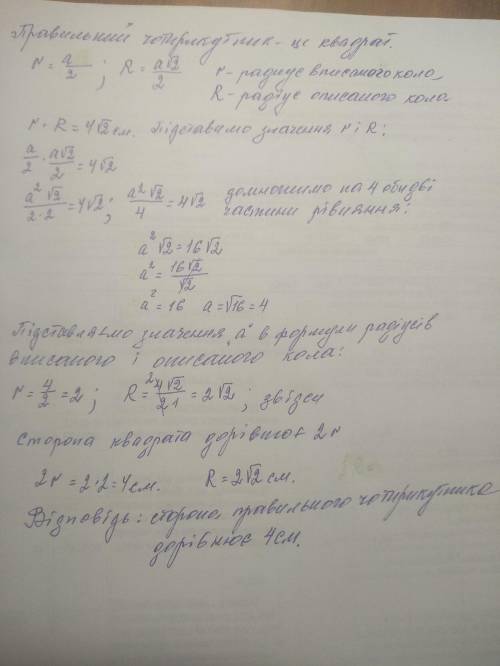 Правильний чотирикутник - це квадрат.
r = a/2 ; R = a√2/2   r - радиус вписаного кола,
R - радіус описаного кола
r · R = 4√2 см. Підставимо значення r і R:
a/2 · a√2/2 = 4√2
a²√2/2·2 = 4√2 ; a²√2/4 = 4√2   домножимо на 4 обидві
частини рівняння:
a²√2 = 16√2
a² = 16√2/√2
a² = 16   a = √16 = 4
Підставляємо значення „a" в формули радіусів
вписаного і описаного кола:
r = 4/2 = 2 ;   R = 4√2/2 = 2√2 ; звідси
сторона квадрата дорівнює 2r
2r = 2·2 = 4 см.   R = 2√2 см.
Відповідь: сторона правильного чотирикутника
дорівнює 4 см.